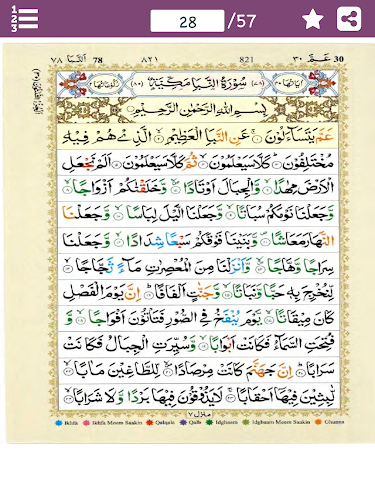 28 /57
٧٨ النبا 78 ٨٢١ 821 عم ٣٠ 30
سُوْرَةُ النَّبَاِ مَكِّيَّةٌ
بِسْمِ اللهِ الرَّحْمٰنِ الرَّحِيْمِ
عَمَّ يَتَسَآءَلُوْنَ ۚ عَنِ النَّبَاِ الْعَظِيْمِ ۙ الَّذِيْ هُمْ فِيْهِ
مُخْتَلِفُوْنَ ؕ كَلَّا سَيَعْلَمُوْنَ ۙ ثُمَّ كَلَّا سَيَعْلَمُوْنَ اَلَمْ نَجْعَلِ
الْاَرْضَ مِهٰدًا ۙ وَّالْجِبَالَ اَوْتَادًا ۙ وَّخَلَقْنٰكُمْ اَزْوَاجًا ۙ
وَّجَعَلْنَا نَوْمَكُمْ سُبَاتًا ۙ وَّجَعَلْنَا الَّيْلَ لِبَاسًا ۙ وَّجَعَلْنَا
النَّهَارَ مَعَاشًا ۪ وَّبَنَيْنَا فَوْقَكُمْ سَبْعًا شِدَادًا ۙ وَّجَعَلْنَا
سِرَاجًا وَّهَّاجًا ۪ وَّاَنْزَلْنَا مِنَ الْمُعْصِرٰتِ مَآءً ثَجَّاجًا ۙ
لِّنُخْرِجَ بِهٖ حَبًّا وَّنَبَاتًا ۙ وَّجَنّٰتٍ اَلْفَافًا ؕ اِنَّ يَوْمَ الْفَصْلِ
كَانَ مِيْقَاتًا ۙ يَّوْمَ يُنْفَخُ فِي الصُّوْرِ فَتَاْتُوْنَ اَفْوَاجًا ۙ وَّ
فُتِحَتِ السَّمَآءُ فَكَانَتْ اَبْوَابًا ۙ وَّسُيِّرَتِ الْجِبَالُ فَكَانَتْ
سَرَابًا ؕ اِنَّ جَهَنَّمَ كَانَتْ مِرْصَادًا ۪ لِّلطَّاغِيْنَ مَاٰبًا ۙ
لّٰبِثِيْنَ فِيْهَاۤ اَحْقَابًا ۚ لَا يَذُوْقُوْنَ فِيْهَا بَرْدًا وَّلَا شَرَابًا ۙ
منزل ٧
Ikhfa Ikhfa Meem Saakin Qalqala Qalb Idghaam Idghaam Meem Saakin Ghunna